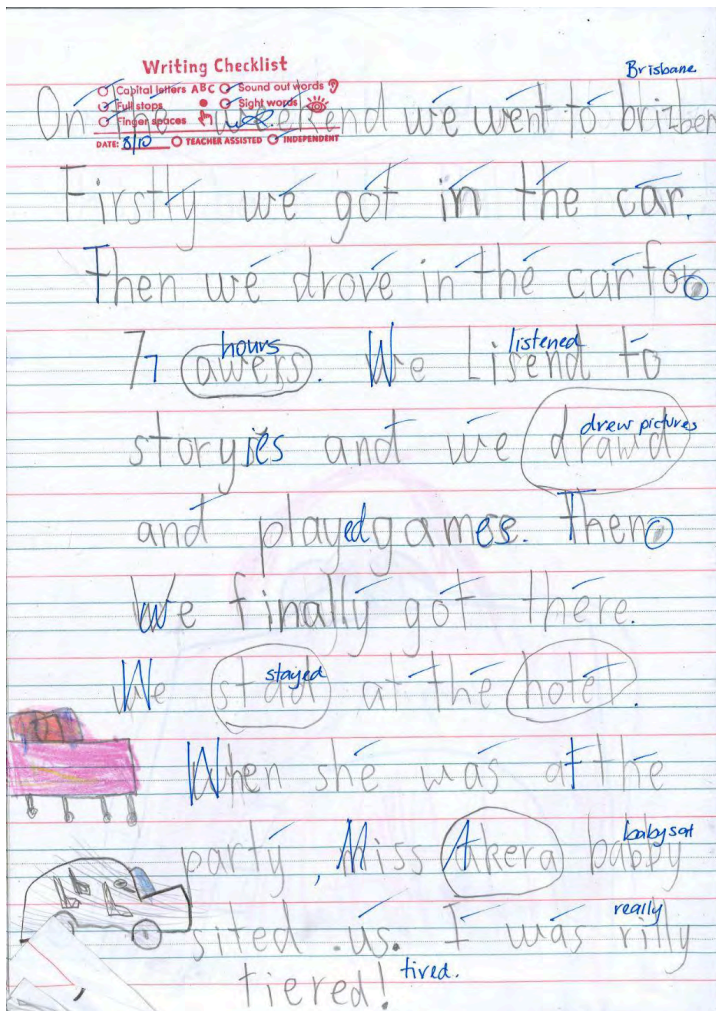 Writing Checklist
Capital letters ABC Sound out words
Full stops Sight words
Finger spaces
DATE: 8/10 TEACHER ASSISTED INDEPENDENT
Brisbane
On the weekend we went to brizben
Firstly we got in the car.
Then we drove in the car for
hours listened
7 awers. We Lisend to
drew pictures
storyies and we drawd
and played games. Then
We finally got there.
stayed
We stad at the hotel.
When she was at the
babysat
party, Miss Akera babby
really
sited us. I was rilly
tiered! tired.